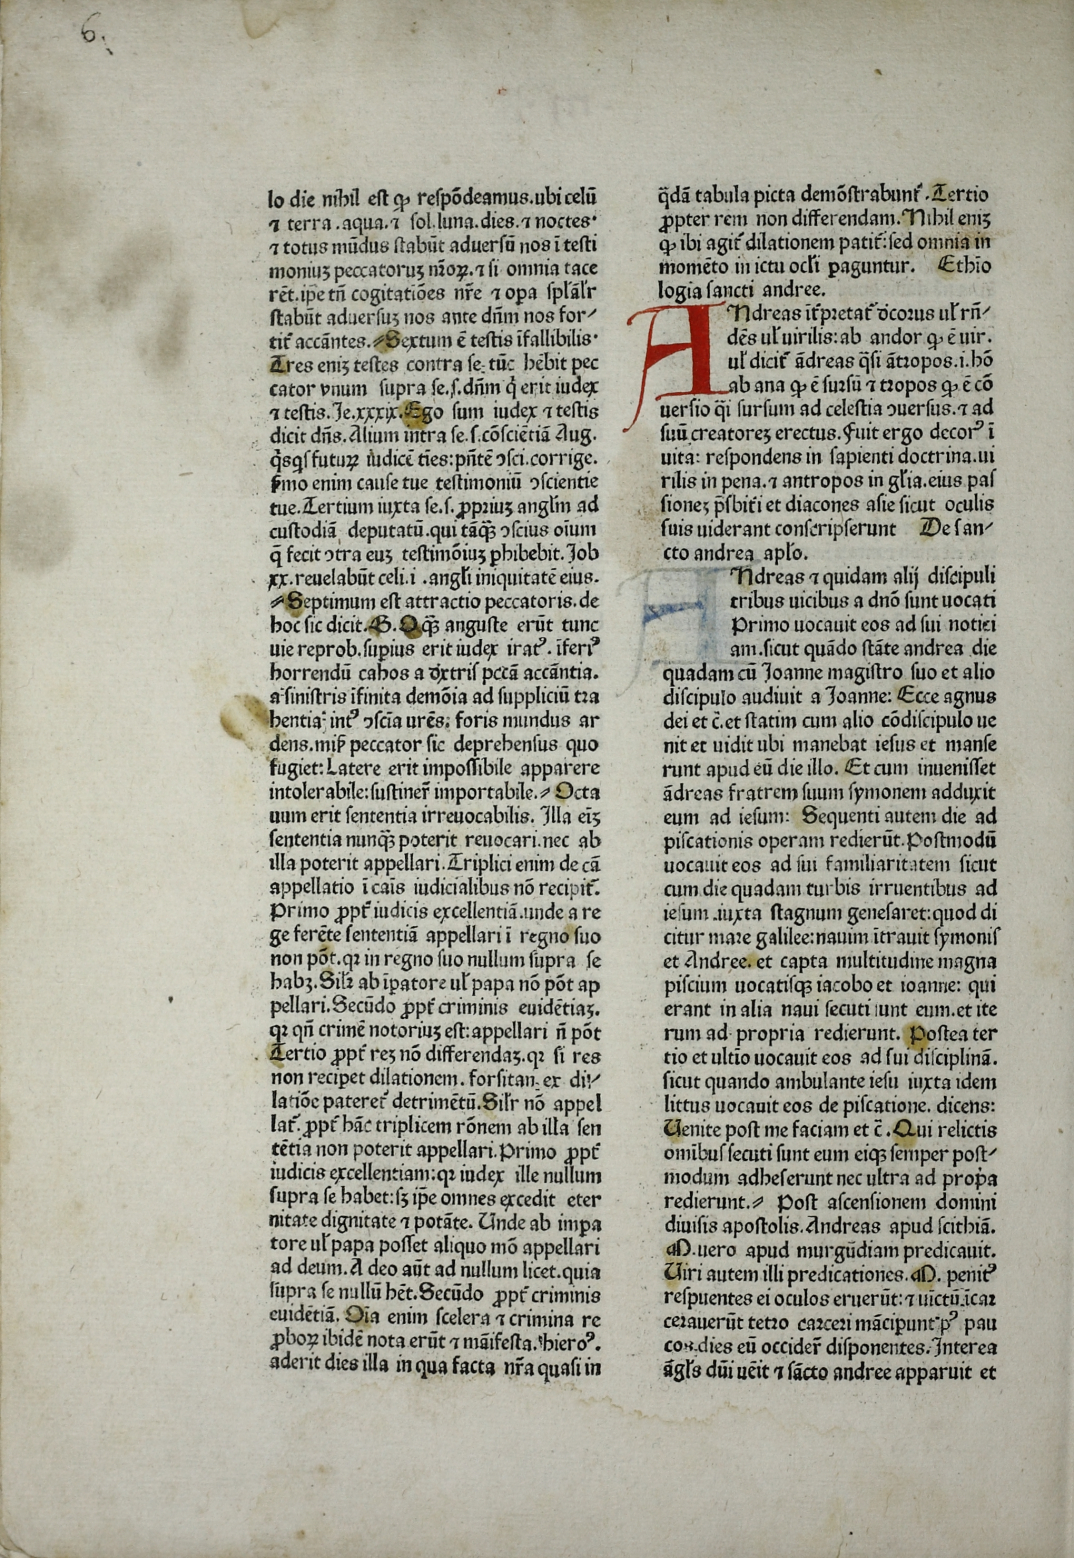 6.
lo die nihil est ꝙ respõdeamus.ubi celũ
⁊ terra.aqua.⁊ sol.luna.dies.⁊ noctes·
⁊ totus mũdus stabũt aduersũ nos ĩ testi
moniuȝ peccatoruȝ nr̃oꝝ.⁊ si omnia tace
rẽt.ip̃e tñ cogitatiões nr̃e ⁊ oꝑa
stabũt aduersuȝ nos ante dñm nos for⸗
tit̃ accãntes.⸗Sextum ẽ testis ĩfallibilis·
Tres eniȝ testes contra se: tũc hẽbit pec
cator vnum supra se.s.dñm q̃ erit iudex
⁊ testis.Je.xxxix.Ego sum iudex ⁊ testis
dicit dñs.Alium intra se.s.cõsciẽtiã Aug.
q̃sq̃s futuꝝ iudicẽ tĩes:pñtẽ ↄsci.corrige.
enim cause tue testimoniũ ↄscientie
tue.Tertium iuxta se.s.ꝓpriuȝ angl̃m ad
custodiã deputatũ.qui tãꝗȝ ↄscius oĩum
q̃ fecit ↄtra euȝ testimõiuȝ ꝑhibebit.Job
xx.reuelabũt celi.i.angl̃i iniquitatẽ eius.
⸗Septimum est attractio peccatoris.de
hoc sic dicit.G.Oꝗȝ anguste erũt tunc
uie reprob.suꝑius erit iudex iratꝰ.ĩferiꝰ
horrendũ cahos a dextris pccã accãntia.
a sinistris ĩfinita demõia ad suppliciũ tra
hentia:intꝰ ↄscĩa urẽs: foris mundus ar
dens.mis̃ peccator sic deprehensus quo
fugiet:Latere erit impossibile apparere
intolerabile:sustiner̃ importabile.⸗Octa
uum erit sententia irreuocabilis.Illa eĩȝ
sententia nunꝗȝ poterit reuocari.nec ab
illa poterit appellari.Triplici enim de cã
appellatio ĩ cãis iudicialibus nõ recipit̃.
Primo ꝓpt̃ iudicis excellentiã.unde a re
ge ferẽte sententiã appellari ĩ regno suo
non põt.qꝛ in regno suo nullum supra se
habȝ.Sil̃r ab ĩpatore ul̃ papa nõ põt ap
pellari.Secũdo ꝓpt̃ criminis euidẽtiaȝ.
qꝛ qñ crimẽ notoriuȝ est:appellari ñ põt
Tertio ꝓpt̃ reȝ nõ differendaȝ.qꝛ si res
non recipet dilationem.forsitan ex di⸗
latiõe pateret̃ detrimẽtũ.Sil̃r nõ appel
lat̃.ꝓpt̃ hãc triplicem rõnem ab illa sen
tẽtia non poterit appellari.Primo ꝓpt̃
iudicis excellentiam:qꝛ iudex ille nullum
supra se habet:sȝ ip̃e omnes excedit eter
nitate dignitate ⁊ potãte.Unde ab impa
tore ul̃ papa posset aliquo mõ appellari
ad deum.A deo aũt ad nullum licet.quia
supra se nullũ hẽt.Secũdo ꝓpt̃ criminis
euidẽtiã.Oĩa enim scelera ⁊ crimina re
ꝓboꝝ ibidẽ nota erũt ⁊ mãifesta.hieroꝰ.
aderit dies illa in qua facta nr̃a quasi in
q̃dã tabula picta demõstrabunt̃.Tertio
ꝓpter rem non differendam.Nihil eniȝ
ꝙ ibi agit̃ dilationem patit̃:sed omnia in
momẽto in ictu ocl̃i ꝑaguntur. Ethio
logia sancti andree.
ANdreas it̃pretat̃ decorus ul̃ rñ⸗
dẽs ul̃ uirilis:ab andor ꝙ ẽ uir.
ul̃ dicit̃ ãdreas q̃si ãtropos.i.hõ
ab ana ꝙ ẽ sursũ ⁊ tropos ꝙ ẽ cõ
uersio q̃i sursum ad celestia ↄuersus.⁊ ad
suũ creatoreȝ erectus.Fuit ergo decorꝰ ĩ
uita: respondens in sapienti doctrina.ui
rilis in pena.⁊ antropos in gl̃ia.eius pas
sioneȝ p̃sbit̃i et diacones asie sicut oculis
suis uiderant conscripserunt De san⸗
cto andrea apl̃o.
ANdreas ⁊ quidam alij discipuli
tribus uicibus a dnõ sunt uocati
Primo uocauit eos ad sui notici
am.sicut quãdo stãte andrea die
quadam cũ Joanne magistro suo et alio
discipulo audiuit a Joanne: Ecce agnus
dei et c̃.et statim cum alio cõdiscipulo ue
nit et uidit ubi manebat iesus et manse
runt apud eũ die illo. Et cum inuenisset
ãdreas fratrem suum symonem adduxit
eum ad iesum: Sequenti autem die ad
piscationis operam redierũt.Postmodũ
uocauit eos ad sui familiaritatem sicut
cum die quadam turbis irruentibus ad
iesum.iuxta stagnum genesaret:quod di
citur mare galilee:nauim ĩtrauit symonis
et Andree. et capta multitudine magna
piscium uocatisꝗȝ iacobo et ioanne: qui
erant in alia naui secuti sunt eum.et ite
rum ad propria redierunt. Postea ter
tio et ultĩo uocauit eos ad sui disciplinã.
sicut quando ambulante iesu iuxta idem
littus uocauit eos de piscatione. dicens:
Uenite post me faciam et c̃.Qui relictis
omĩbus secuti sunt eum eiqȝ semper post⸗
modum adheserunt nec ultra ad prop̃a
redierunt.⸗ Post ascensionem domini
diuisis apostolis.Andreas apud scithiã.
M.uero apud murgũdiam predicauit.
Uiri autem illi predicationes.M. penitꝰ
respuentes ei oculos eruerũt:⁊ uĩctũ ĩcar
cerauerũt tetro carceri mãcipunt̃.pꝰ pau
cos.dies eũ occider̃ disponentes.Interea
ãgl̃s dñi uẽit ⁊ sãcto andree apparuit et